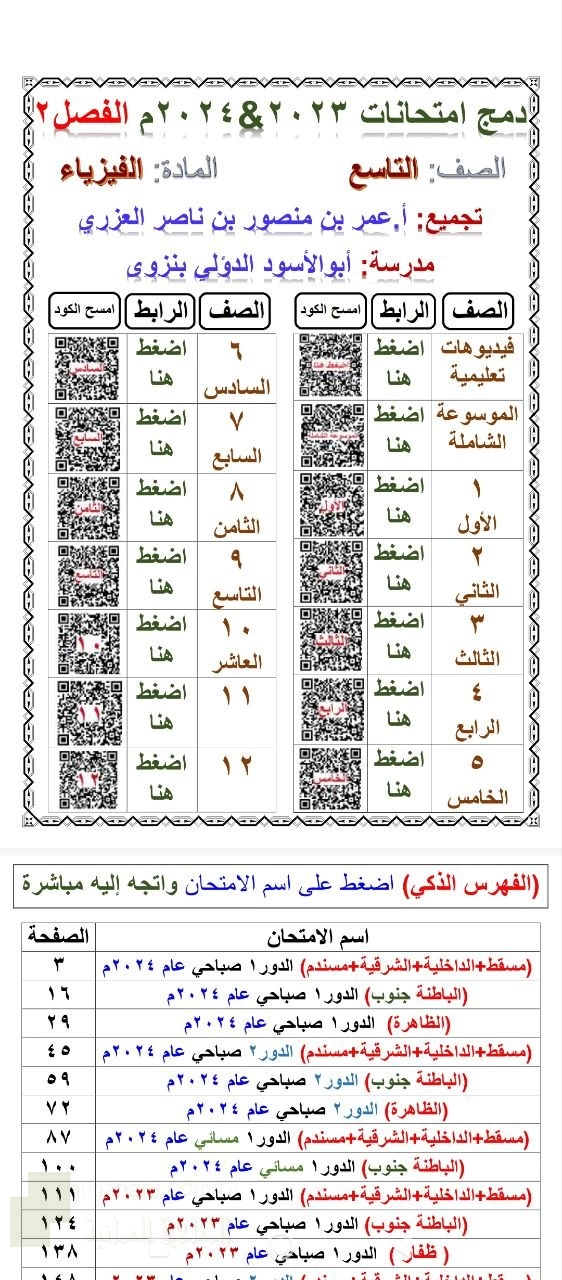 دمج امتحانات ٢٠٢٣&٢٠٢٤م الفصل٢
الصف: التاسع المادة: الفيزياء
تجميع: أ.عمر بن منصور بن ناصر العزري
مدرسة: أبوالأسود الدؤلي بنزوى
الصف الرابط امسح الكود الصف الرابط امسح الكود
فيديوهات تعليمية اضغط هنا اضغط هنا ٦ السادس اضغط هنا السادس
الموسوعة الشاملة اضغط هنا الموسوعة الشاملة ٧ السابع اضغط هنا السابع
١ الأول اضغط هنا الأول ٨ الثامن اضغط هنا الثامن
٢ الثاني اضغط هنا الثاني ٩ التاسع اضغط هنا التاسع
٣ الثالث اضغط هنا الثالث ١٠ العاشر اضغط هنا ١٠
٤ الرابع اضغط هنا الرابع ١١ اضغط هنا ١١
٥ الخامس اضغط هنا الخامس ١٢ اضغط هنا ١٢
(الفهرس الذكي) اضغط على اسم الامتحان واتجه إليه مباشرة
اسم الامتحان الصفحة
(مسقط+الداخلية+الشرقية+مسندم) الدور١ صباحي عام ٢٠٢٤م ٣
(الباطنة جنوب) الدور١ صباحي عام ٢٠٢٤م ١٦
(الظاهرة) الدور١ صباحي عام ٢٠٢٤م ٢٩
(مسقط+الداخلية+الشرقية+مسندم) الدور٢ صباحي عام ٢٠٢٤م ٤٥
(الباطنة جنوب) الدور٢ صباحي عام ٢٠٢٤م ٥٩
(الظاهرة) الدور٢ صباحي عام ٢٠٢٤م ٧٢
(مسقط+الداخلية+الشرقية+مسندم) الدور١ مسائي عام ٢٠٢٤م ٨٧
(الباطنة جنوب) الدور١ مسائي عام ٢٠٢٤م ١٠٠
(مسقط+الداخلية+الشرقية+مسندم) الدور١ صباحي عام ٢٠٢٣م ١١١
(الباطنة جنوب) الدور١ صباحي عام ٢٠٢٣م ١٢٤
( ظفار ) الدور١ صباحي عام ٢٠٢٣م ١٣٨